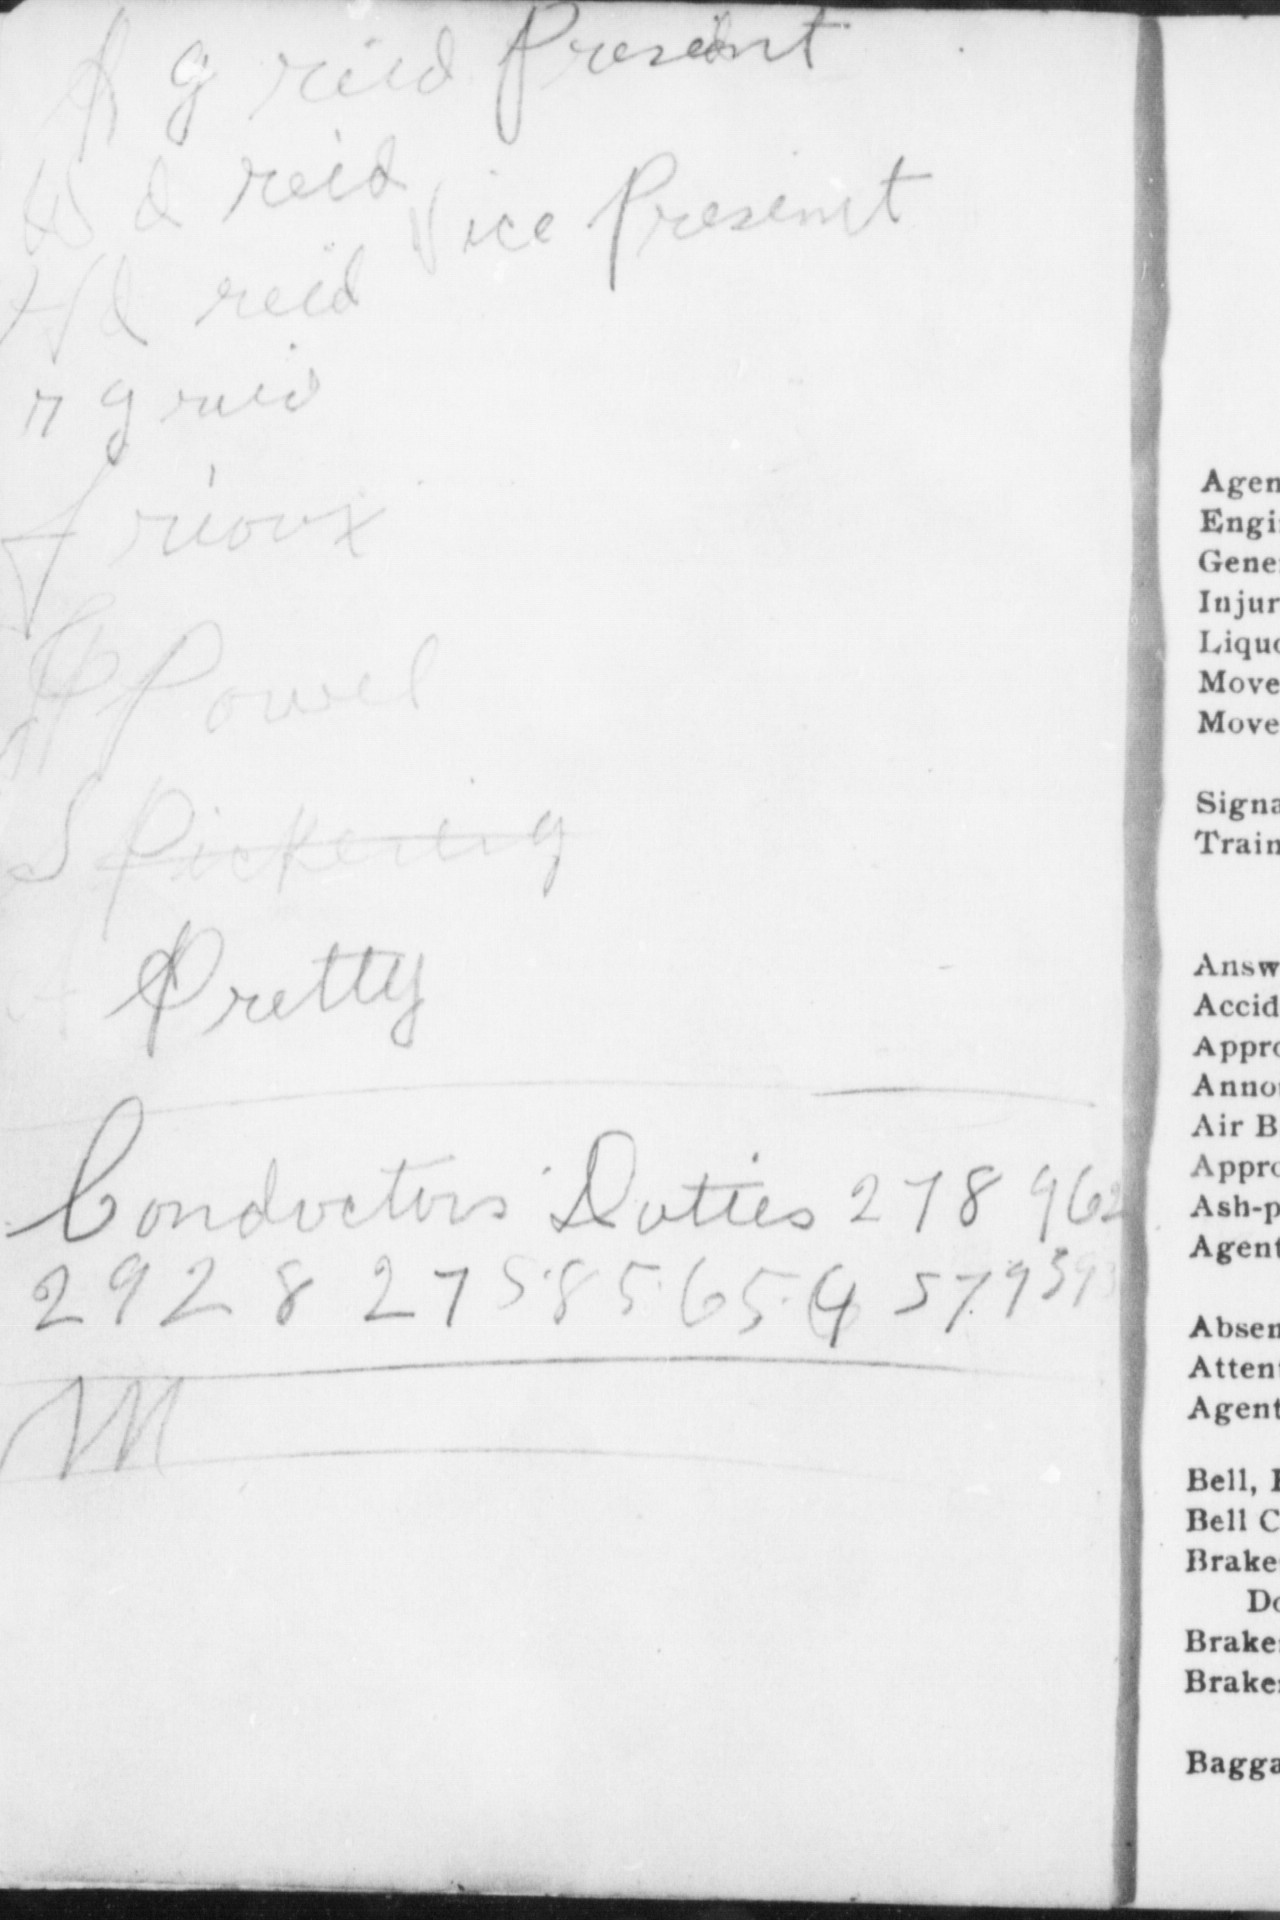 g reid Present
W d reid Vice Present
H d reid
r g reid
J rioux
Powel
S Pickering
Pretty
Conductors Duties 278 962
292 8 27 58 5 65 4 57 9 39
M
Agen
Engi
Gene
Injur
Liquo
Move
Move
Signa
Train
Answ
Accid
Appro
Anno
Air B
Appro
Ash-p
Agent
Absen
Atten
Agent
Bell,
Bell C
Brake
Do
Brake
Brake
Bagga